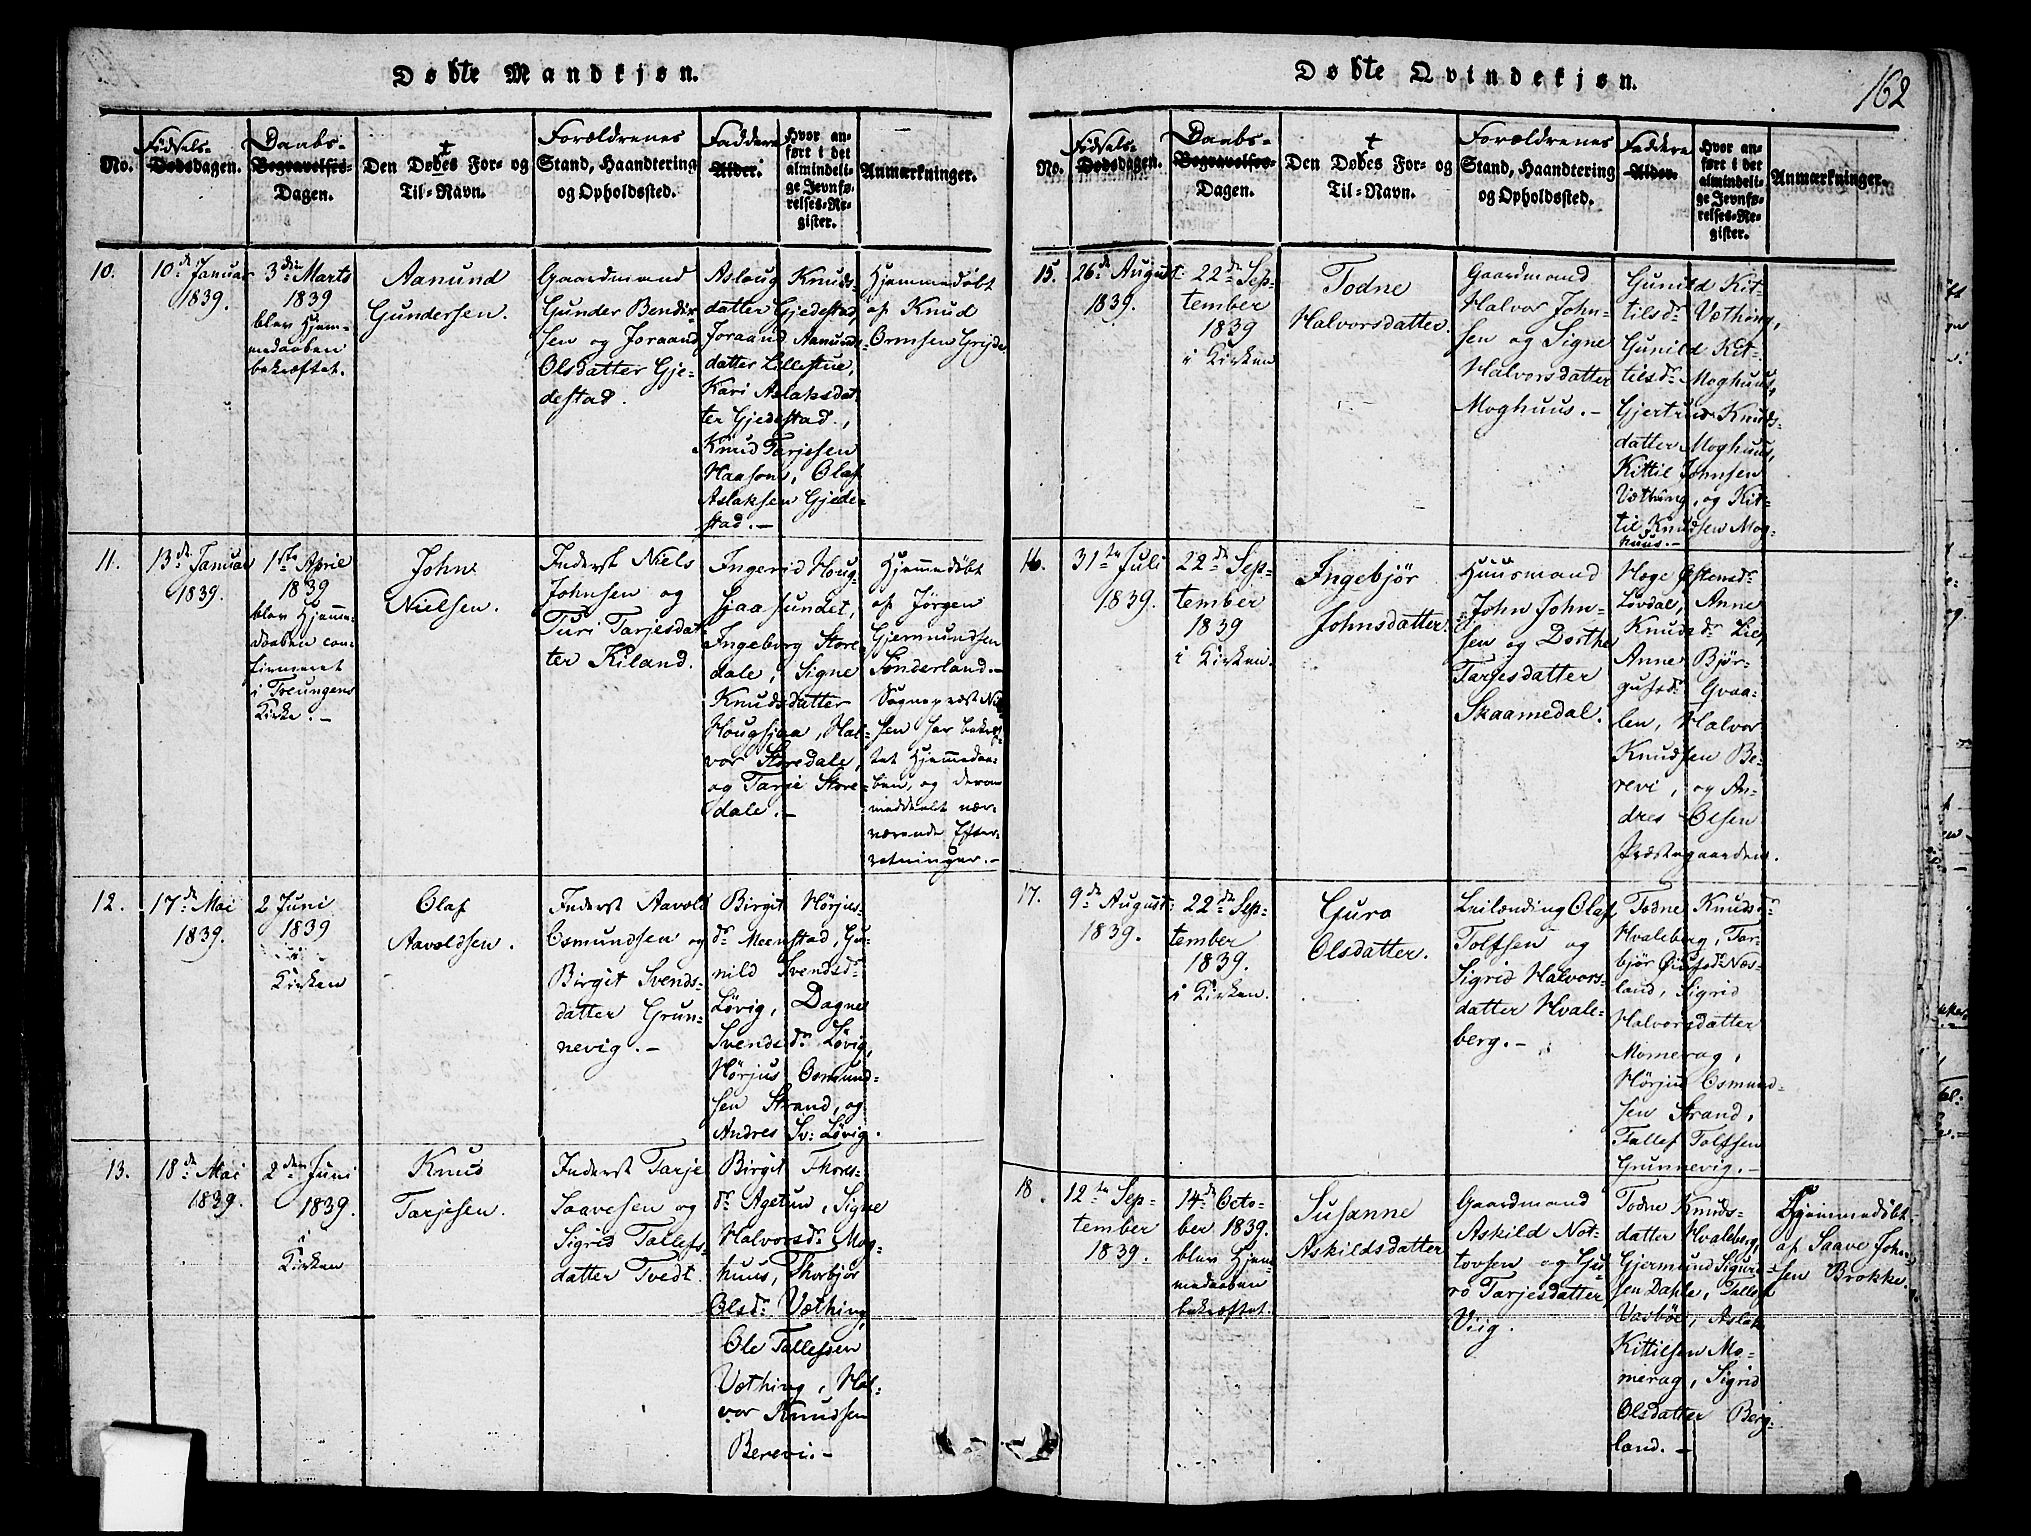 Døbte Mandkjøn.
No.
Fødsels-
Dødsdagen.
Daabs-
Begravelses-
Dagen.
Den Døbes For- og
Til-Navn.
Forældrenes
Stand, Haandtering
og Opholdssted.
Faddere
Alder.
Hvor an-
ført i det
almindeli-
ge Jevnfø-
relses-Re-
gister.
Anmærkninger.
10.
10de Januar
1839.
3die Marts
1839
blev Hjem-
medaaben
bekræftet.
Aanund
Gundersen.
Gaardmand
Gunder Bendix-
sen og Joraand
Olsdatter Gje-
destad.
Aslaug Knuds-
datter Gjedestad,
Joraand Aanunds-
datter Lillestue,
Kari Aslaksdat-
ter Gjedestad,
Knud Tarjesen
Haasom, Olaf
Aslaksen Gjede-
stad.-
Hjemmedøbt
af Knud
Ormsen
11.
13de Januar
1839.
1ste April
1839
blev Hjemme-
daaben con-
firmeret
i Treungens
Kirke.-
John
Nielsen.
Inderst Niels
Johnsen og
Turi Tarjesdat-
ter Kiland.
Ingerid Houg-
sjaasundet,
Ingeborg Store-
dale, Signe
Knudsdatter
Hougsjaa, Hal-
vor Storedale,
og Tarje Store-
dale.-
Hjemmedøbt
af Jørgen
Gjermundsen
Sønderland.-
Sognepræst Niel-
sen har bekræf-
tet Hjemmedaa-
ben, og derom
meddeelt nær-
værende Efter-
retninger.-
12.
17de Mai
1839.
2 Juni
1839
i
Kirken
Olaf
Aavoldsen.
Inderst Aavold
Osmundsen og
Birgit Svends-
datter Grun-
nevig.-
Birgit Hørjus-
dr Meenstad, Gu-
nild Svendsdr
Løvig, Dagne
Svendsdr Løvig,
Hørjus Osmund-
sen Strand, og
Andres Sv: Løvig.
13.
18de Mai
1839.
2den Juni
1839.
i
Kirken
Knud
Tarjesen.
Inderst Tarje
Saavesen og
Sigrid Tallefs-
datter Tvedt.
Birgit Thores-
dr Agetun, Signe
Halvorsdr Mog-
huus, Thorbjør
Olsdr Væthing,
Ole Tallefsen
Væthing, Hal-
vor Knudsen
Berevi.-
Døbte Qvindekjøn.
162
No.
Fødsels-
Dødsdagen.
Daabs-
Begravelses-
Dagen.
Den Døbes For- og
Til-Navn.
Forældrenes
Stand, Haandtering
og Opholdssted.
Faddere
Alder.
Hvor an-
ført i det
almindeli-
ge Jevnfø-
relses-Re-
gister.
Anmærkninger.
15.
26de August
1839.
22de Sep-
tember
1839
i Kirken
Todne
Halvorsdatter.
Gaardmand
Halvor John-
sen og Signe
Halvorsdatter
Moghuus.-
Gunild Kit-
tilsdr Væthing,
Gunild Kit-
tilsdr Moghuus,
Gjertrud Knuds-
datter Moghuus,
Kittil Johnsen
Væthing, og Kit-
til Knudsen Mog-
huus.-
16.
31te Juli
1839.
22de Sep-
tember
1839
i Kirken.
Ingebjør
Johnsdatter.
Huusmand
John John-
sen og Dorthe
Tarjesdatter
Skaamedal.
Hæge Østensdr
Løvdal, Anne
Knudsdr Lie,
Anne Bjør-
gufsdr Qvaa-
len, Halvor
Knudsen Be-
revi, og An-
dres Olsen
Præstegaarden.
17.
9de August
1839.
22de Sep-
tember
1839.
i Kirken.
Guro
Olsdatter.
Leilænding Olaf
Tolfsen og
Sigrid Halvors-
datter Hvale-
berg.-
Todne Knudsdr
Hvaleberg, Tor-
bjør Næs-
land, Sigrid
Halvorsdatter
Momerag,
Hørjus Osmund-
sen Strand,
Tallef Tolfsen
Grunnevig.-
18.
12te Sep-
tember
1839.
14de Octo-
ber 1839.
blev Hjem-
medaaben
bekræftet.
Susanne
Askildsdatter
Gaardmand
Askild Not-
tovsen og Gu-
ro Tarjesdatter
Viig.
Todne Knuds-
datter Hvaleberg,
Gjermund Sigurd-
sen Dahle, Tallef
Vasbøe, Aslak
Kittilsen Mo-
merag, Sigrid
Olsdatter Berg-
land.-
Hjemmedøbt
af Saave John-
sen Brokke.